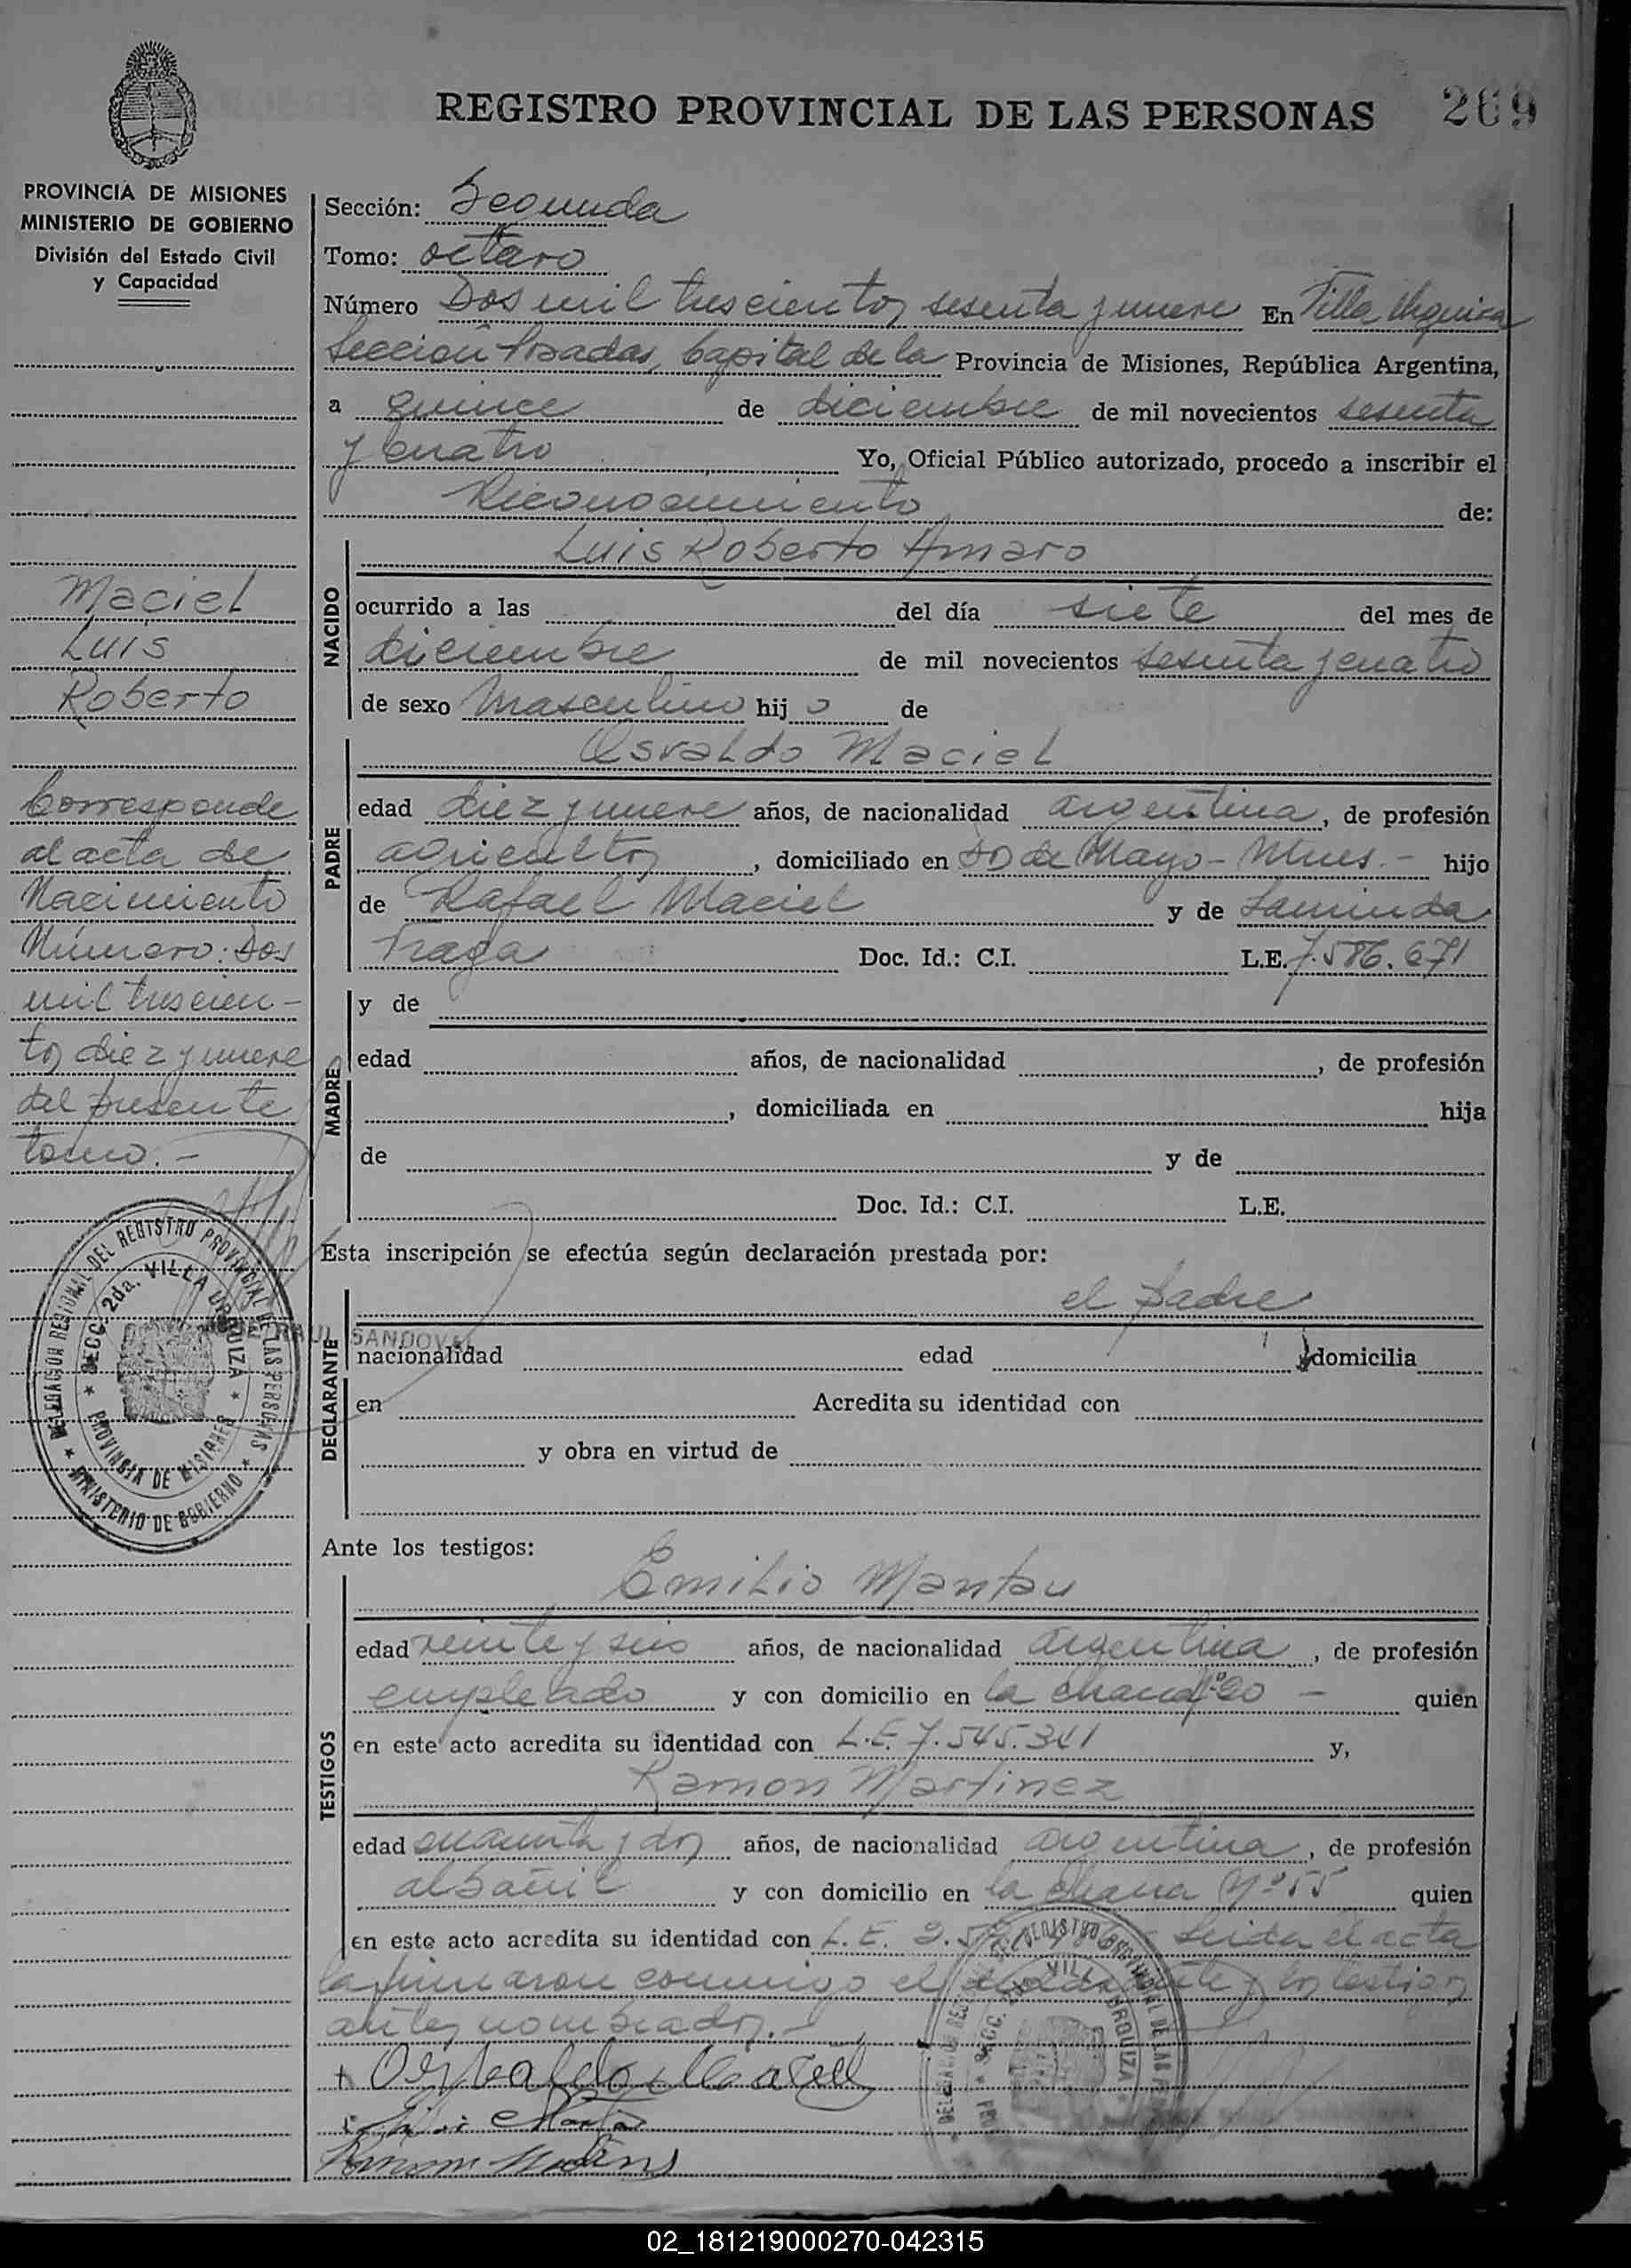 REGISTRO PROVINCIAL DE LAS PERSONAS 269
PROVINCIA DE MISIONES
MINISTERIO DE GOBIERNO
División del Estado Civil
y Capacidad
Sección: Segunda
Tomo: octavo
Número Dos mil trescientos sesenta y nueve En Villa Urquiza
Sección Posadas, Capital de la Provincia de Misiones, República Argentina,
a quince de diciembre de mil novecientos sesenta
y cuatro Yo, Oficial Público autorizado, procedo a inscribir el
Reconocimiento de:
Maciel
Luis
Roberto
Corresponde
al acta de
Nacimiento
Número: Dos
mil trescien-
tos diez y nueve
del presente
tomo. -
NACIDO
Luis Roberto Amaro
ocurrido a las del día siete del mes de
diciembre de mil novecientos sesenta y cuatro
de sexo Masculino hij o de
PADRE
Osvaldo Maciel
edad diez y nueve años, de nacionalidad argentina, de profesión
agricultor, domiciliado en de Mayo - Mnes. - hijo
de Rafael Maciel y de
Doc. Id.: C.I. L.E. 7.586.671
MADRE
y de
edad años, de nacionalidad , de profesión
, domiciliada en hija
de y de
Doc. Id.: C.I. L.E.
Esta inscripción se efectúa según declaración prestada por:
DECLARANTE
el padre
RAUL SANDOVAL
nacionalidad edad domicilia
en Acredita su identidad con
y obra en virtud de
DELEGACION REGIONAL DEL REGISTRO PROVINCIAL DE LAS PERSONAS
SECC. 2da. VILLA URQUIZA
PROVINCIA DE MISIONES
MINISTERIO DE GOBIERNO
Ante los testigos:
TESTIGOS
Emilio Mantau
edad veinte y seis años, de nacionalidad argentina, de profesión
empleado y con domicilio en la quien
en este acto acredita su identidad con L.E. 7.545.341 y,
Ramon Martinez
edad cuarenta y dos años, de nacionalidad argentina, de profesión
albañil y con domicilio en la chacra Nº 55 quien
en este acto acredita su identidad con L.E. Leida el acta
la firmaron conmigo el declarante y los testigos
antes nombrados. -
+ Maciel
Ramon
02_181219000270-042315